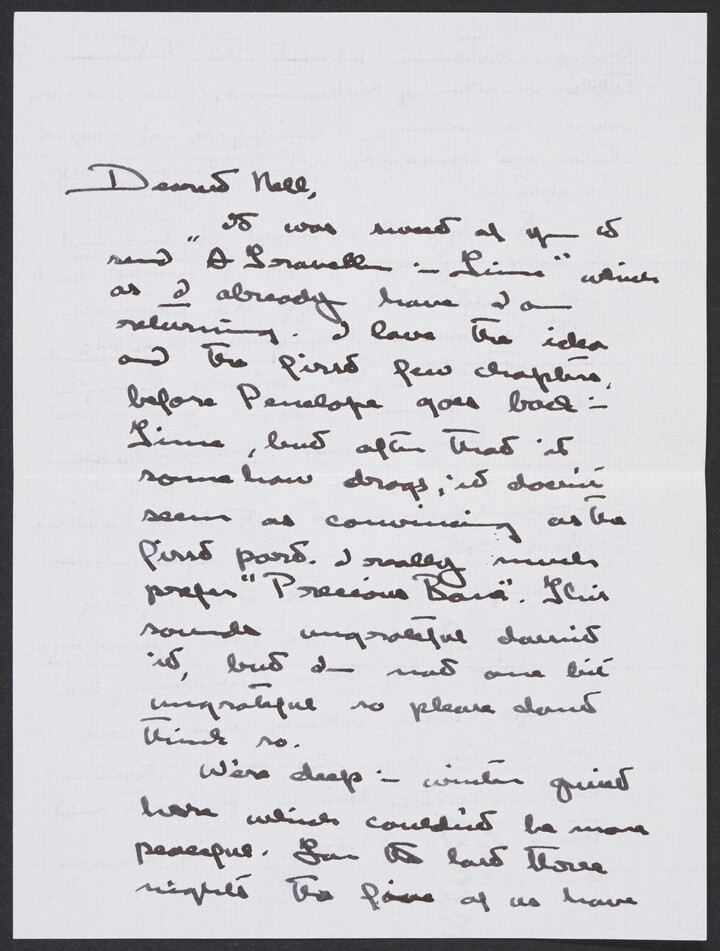 Dearest Nell,
It was sweet of you to
send "A Traveller in Time" which
as I already have I am
returning. I love the idea
and the first few chapters,
before Penelope goes back in
Time, but after that it
somehow drags, it doesn't
seem as convincing as the
first part. I really much
prefer "Precious Bane". This
sounds ungrateful doesn't
it, but I'm not one bit
ungrateful so please don't
think so.
We're deep in winter quiet
here which couldn't be more
peaceful. For the last three
nights the five of us have